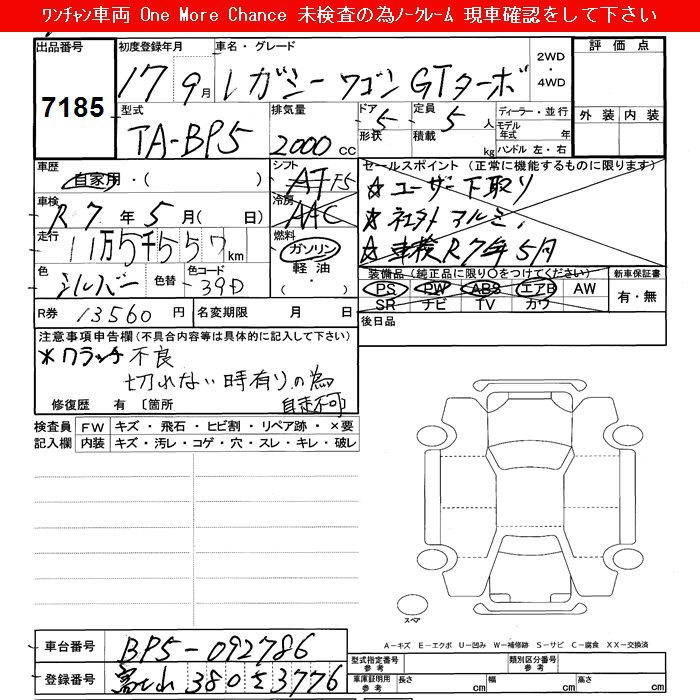 ﾜﾝﾁｬﾝ車両 One More Chance 未検査の為ﾉｰｸﾚｰﾑ 現車確認をして下さい
出品番号 初度登録年月 車名・グレード 2WD・4WD 評価点
7185 17 9月 レガシーワゴンGTターボ
型式 排気量 ドア 形状 定員 積載 ディーラー・並行 外装 内装
TA-BP5 2000cc 5 5人 kg モデル年式 年 ハンドル 左・右
車歴 シフト セールスポイント (正常に機能するものに限ります)
自家用・( ) AT F5 ☆ユーザー下取り
車検 R7年5月( 日) 冷房 AAC ☆社外アルミ、
走行 11万5千557km 燃料 ガソリン ☆車検R7年5月
色 シルバー 色替 色コード 39D 軽油・( )
装備品(純正品に限り○をつけてください) 新車保証書
PS PW ABS エアB AW 有・無
SR ナビ TV カワ
R券 13560円 名変期限 月 日 後日品
注意事項申告欄(不具合内容等は具体的に記入して下さい)
※クラッチ不良
切れない時有りの為
自走不可
修復歴 有〔箇所 〕
検査員 FW キズ・飛石・ヒビ割・リペア跡・×要
記入欄 内装 キズ・汚レ・コゲ・穴・スレ・キレ・破レ
スペア
A-キズ E-エクボ U-凹み W-補修跡 S-サビ C-腐食 XX-交換済
車台番号 BP5-092786 型式指定番号 参考 類別区分番号 参考
登録番号 富山 380 3776 車庫証明用 参考 長さ cm 幅 cm 高さ cm